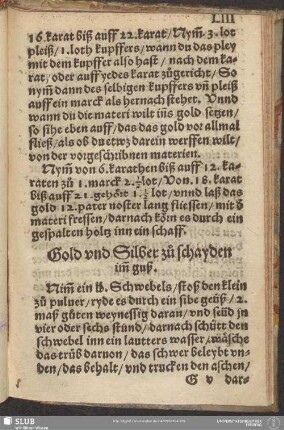 LIII
16. karat biß auff 22. karat/ Nym̃ 3. lot
pleiß/ 1. loth kupffers/ wann du das pley
mit dem kupffer also hast/ nach dem ka-
rat/ oder auff yedes karat zůgericht/ So
nym̃ dann des selbigen kupffers vñ pleiß
auff ein marck als hernach stehet. Vnnd
wann du die materi wilt inš gold setzen/
so sihe eben auff/ das das gold vor allmal
fließ/ als ob du etwz darein werffen wilt/
von der vorgeschribnen materien.
Nym̃ von 6. karathen biß auff 12. ka-
raten zů 1. marck 2. ½ lot/ Von 18. karat
biß auff 21. gehört 1. ½ lot/ vnnd laß das
gold 12. pater noster lang fliessen/ mit d̾
materi fressen/ darnach köm es durch ein
gespalten holtz inn ein schaff.
Gold vnd Silber zů schayden
im̃ guß.
Nim̃ ein lb. Schwebels/ stoß den klein
zů puluer/ ryde es durch ein sibe geüß/ 2.
maß gůten weynessig daran/ vnd seüd jn
vier oder sechs stund/ darnach schütt den
schwebel inn ein lautters wasser/ wäsche
das trüb daruon/ das schwer beleybt vn-
den/ das behalt/ vnd trucken den aschen/
G v dar-
SLUB